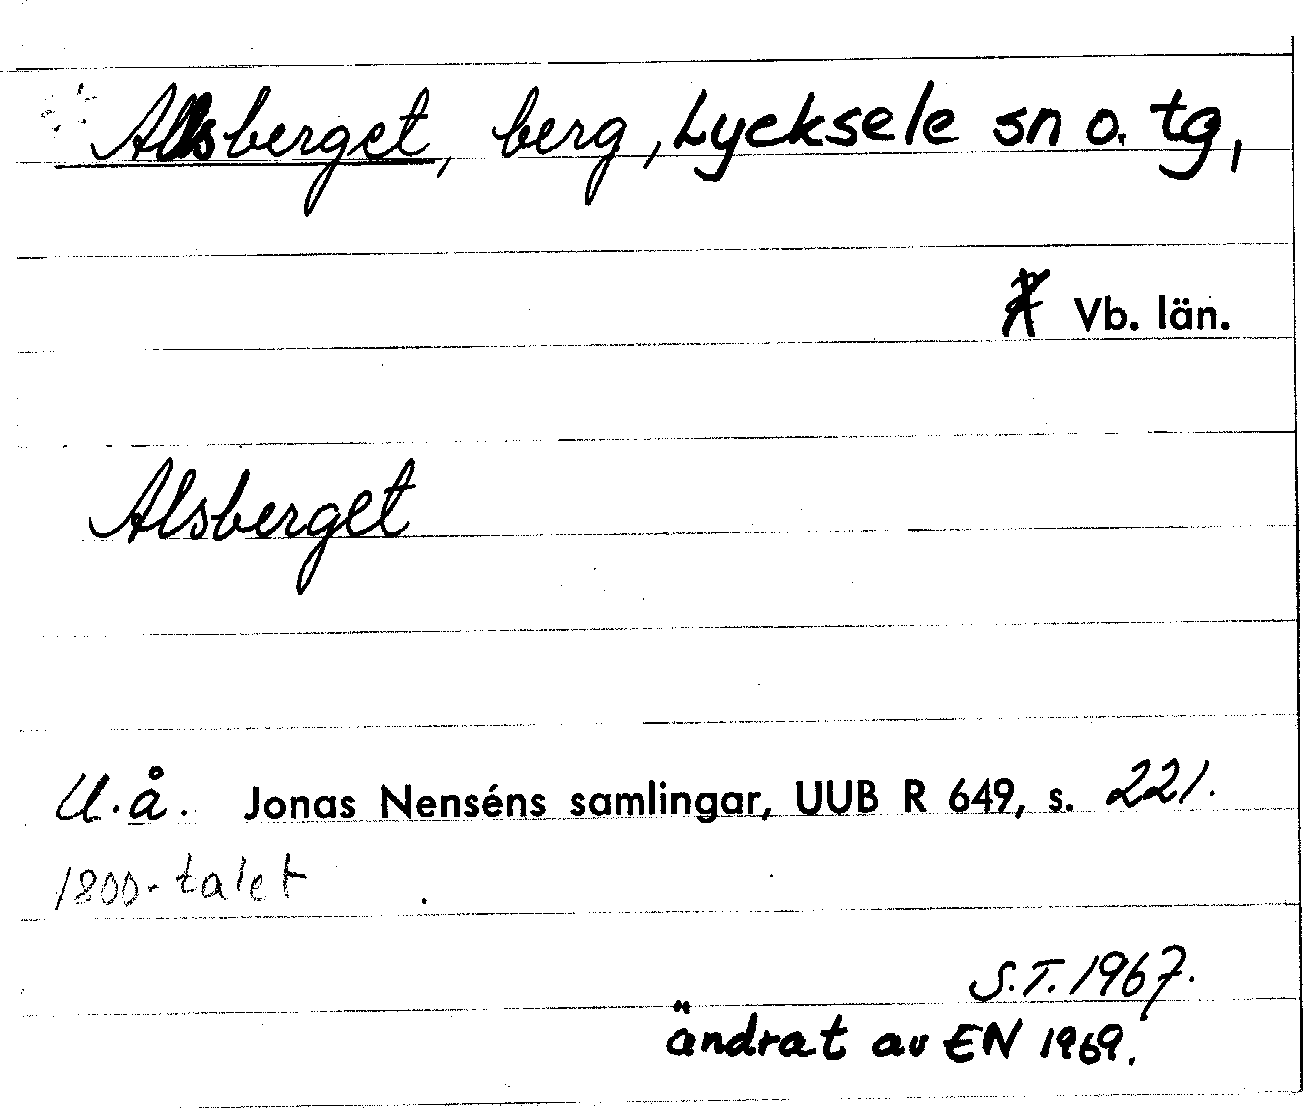 Alsberget, berg, Lycksele sn o. tg,
Vb. län.
Alsberget
U.å. Jonas Nenséns samlingar, UUB R 649, s. 221.
1800-talet
S.T. 1967.
ändrat av EN 1969.